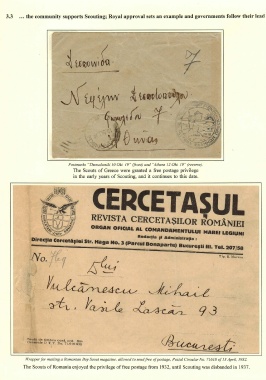 3.3 ... the community supports Scouting; Royal approval sets an example and governments follow their lead
Δεσποινίδα
7
Νεφέλην
7
Ἀθήνας
Postmarks "Thessaloniki 10 Okt. 19" (front) and "Athens 12 Okt. 19" (reverse).
The Scouts of Greece were granted a free postage privilege
in the early years of Scouting, and it continues to this date.
CERCETAȘUL
REVISTA CERCETAȘILOR ROMÂNIEI
ORGAN OFICIAL AL COMANDAMENTULUI MARII LEGIUNI
Redacția și Administrația:
Direcția Cercetășiei Str. Haga No. 3 (Parcul Bonaparte) București III. Tel. 207/58
No.
Dlui
Vulcănescu Mihail
str. Vasile Lascăr 93
București
Wrapper for mailing a Romanian Boy Scout magazine, allowed to send free of postage, Postal Circular No. 71610 of 15 April, 1932.
The Scouts of Romania enjoyed the privilege of free postage from 1932, until Scouting was disbanded in 1937.